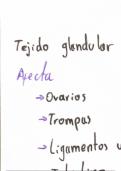 Tejido glandular
Afecta
→ Ovarios
→ Trompas
→ Ligamentos